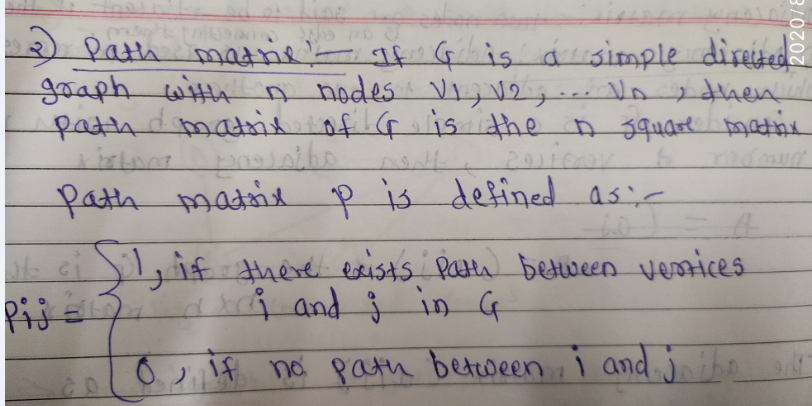 2020/8
2) Path matrix:- If G is a simple directed
graph with n nodes V1, V2, ... Vn, then
path matrix of G is the n square matrix
Path matrix P is defined as:-
1, if there exists Path between vertices
Pij = i and j in G
0, if no path between i and j